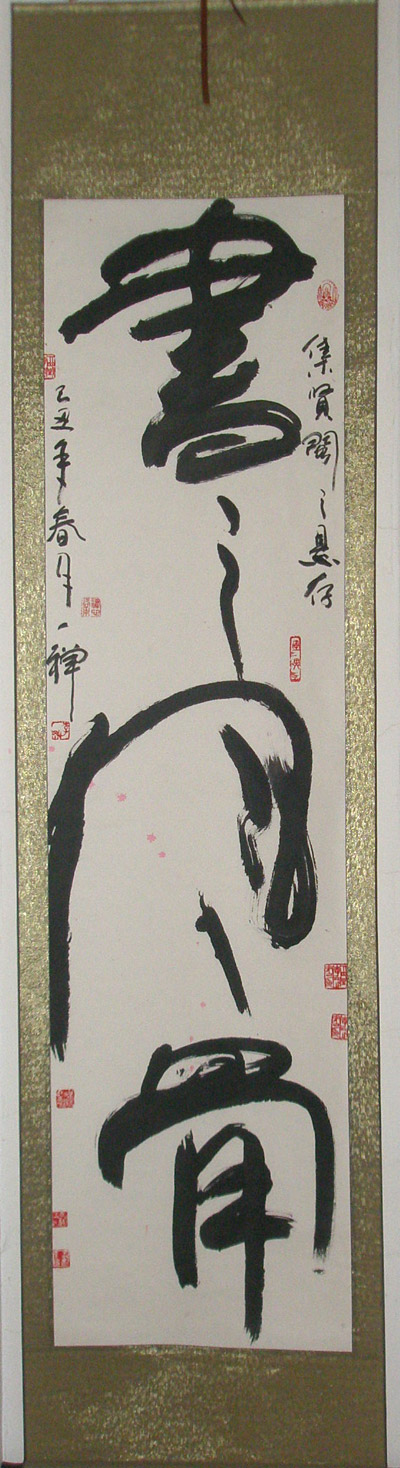 集賢閣之惠存
書之風骨
己丑年春月一禪